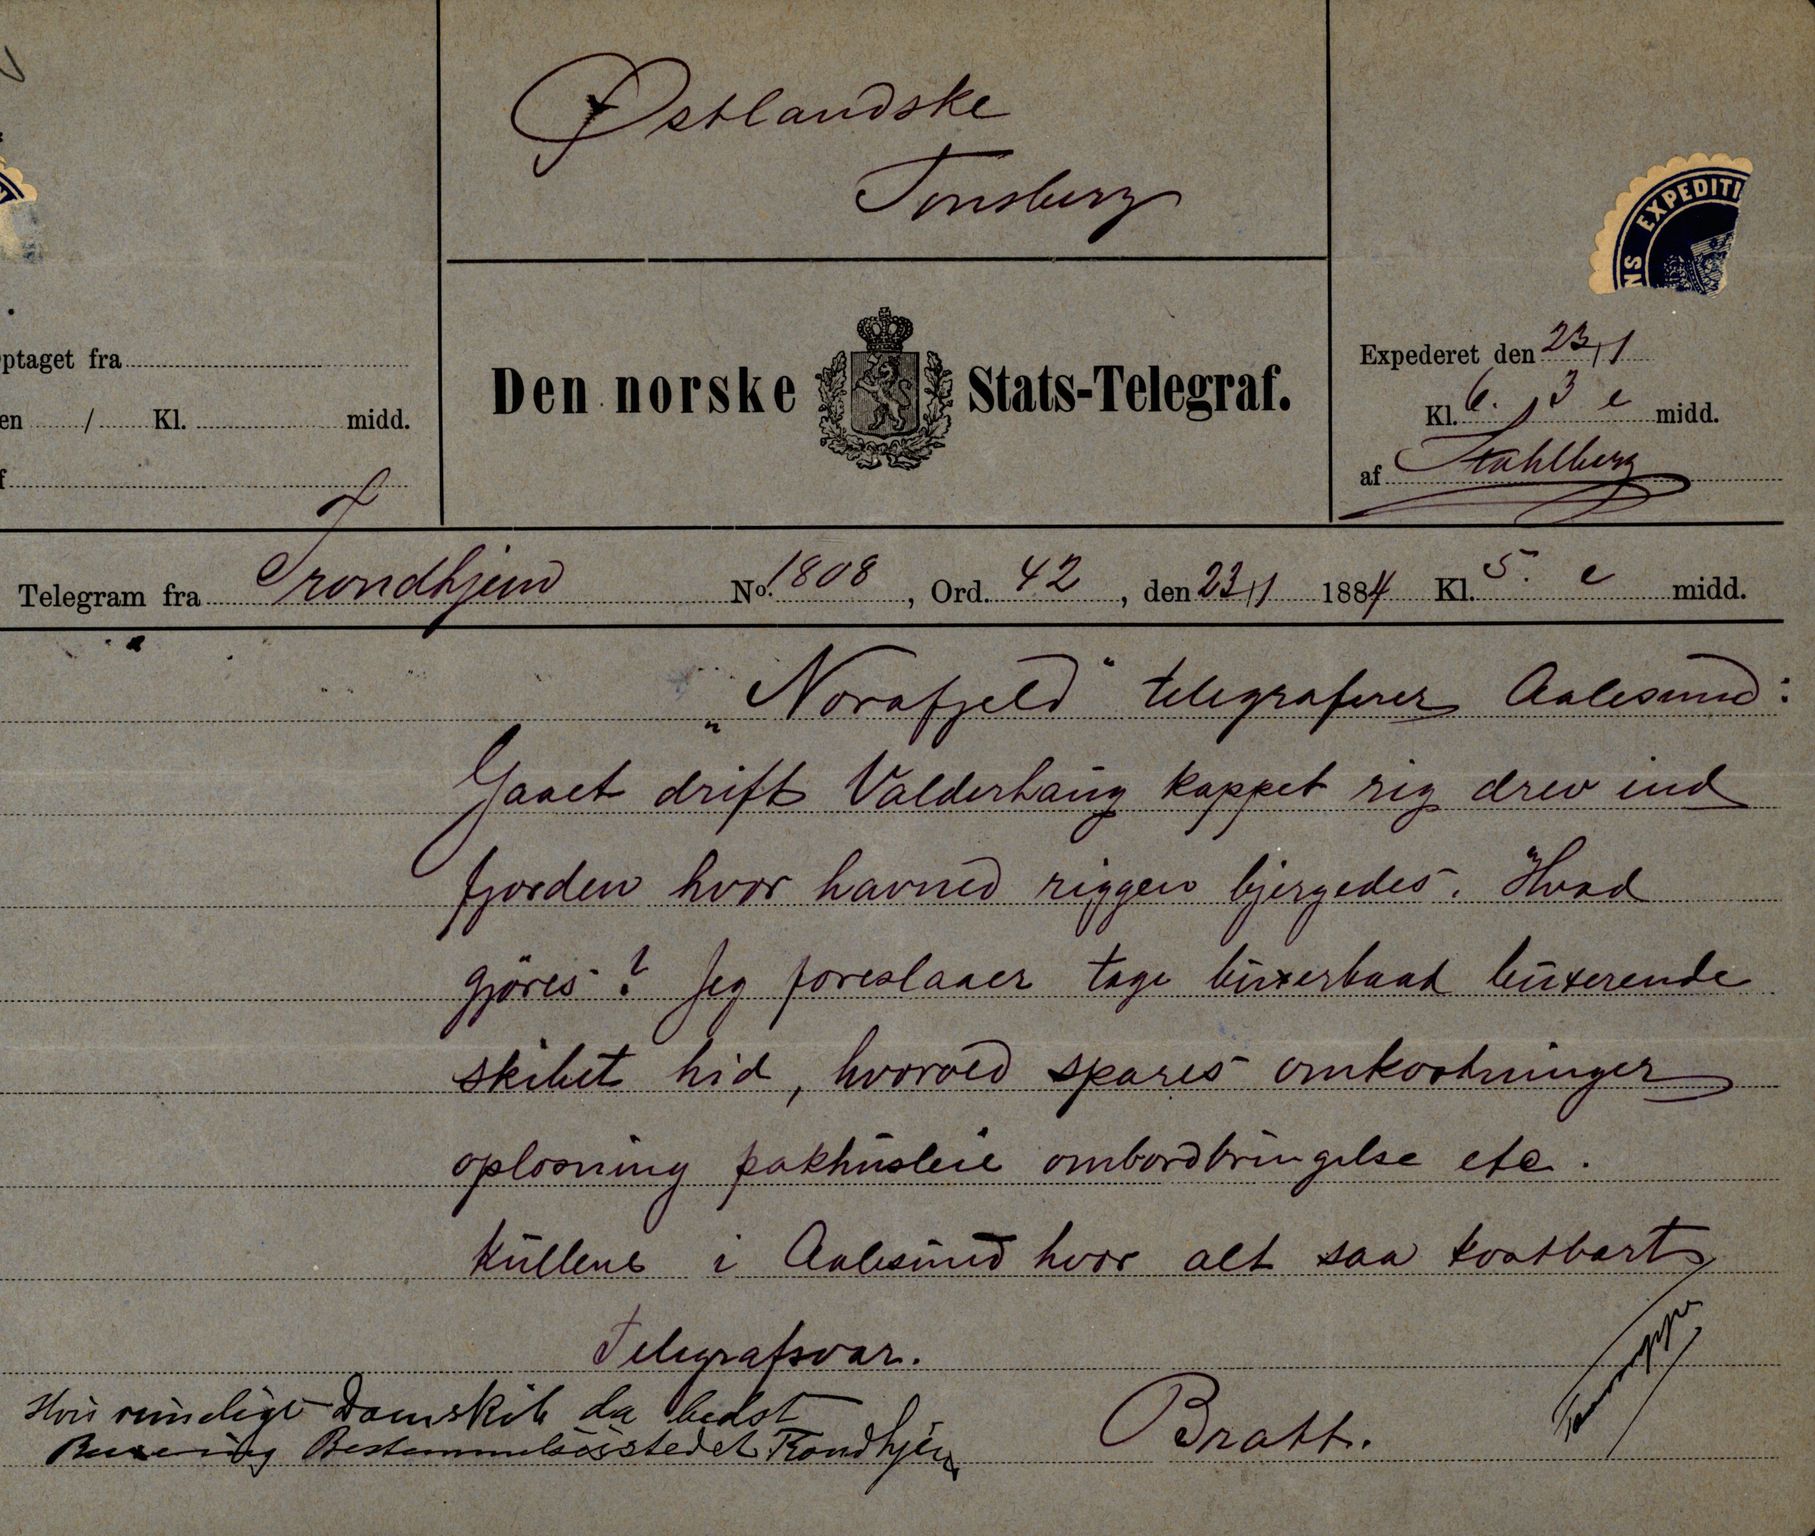 Østlandske
Tønsberg
EXPEDITI
NS
ptaget fra
Den norske Stats-Telegraf.
Expederet den 23/1
en / Kl. midd.
Kl. 6. 3 e midd.
af Stahlberg
Telegram fra Trondhjem No. 1808, Ord. 42, den 23/1 1884 Kl. 5. e midd.
„Norafjeld“ telegraferer Aalesund:
Gaaet drift Valderhaug kappet rig drev ind
fjorden hvor havned riggen bjergedes. Hvad
gjöres? Jeg foreslaaer tage buxerbaad buxerende
skibet hid, hvorved spares omkostninger
oplosning pakhusleie ombordbringelse etc.
Kullene i Aalesund hvor alt saa kostbart
Telegrafsvar.
Hvis rimeligt Damskib da bedst
Buxering Bestemmelsesstedet Trondhjem
Bratt.